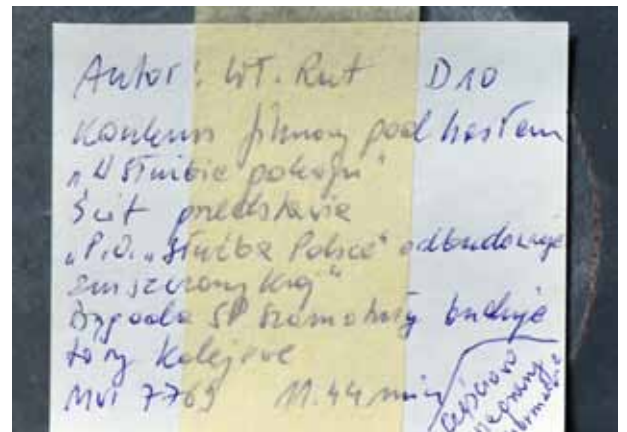 Autor: Wł. Rut D10
Konkurs filmowy pod hasłem
"W służbie pokoju"
Scit przedstawia
"P.O. "Służba Polsce" odbudowuje
zniszczony kraj"
Brygada SP Szamotuły buduje
tory kolejowe
MVI 7769 11.44 min
częściowo
nagrany